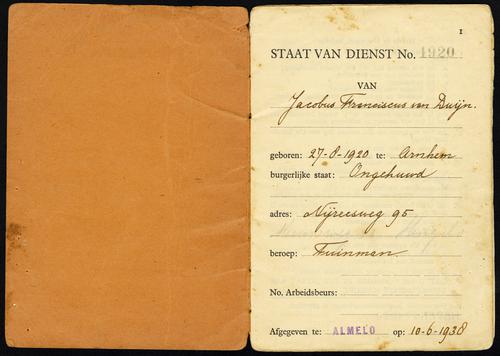 1
STAAT VAN DIENST No. 1920
VAN
Jacobus Franciscus van Duijn.
geboren: 27-8-1920 te: Arnhem
burgerlijke staat: Ongehuwd
adres: Nijreesweg 95
beroep: Tuinman.
No. Arbeidsbeurs:
Afgegeven te: ALMELO op: 10-6-1938